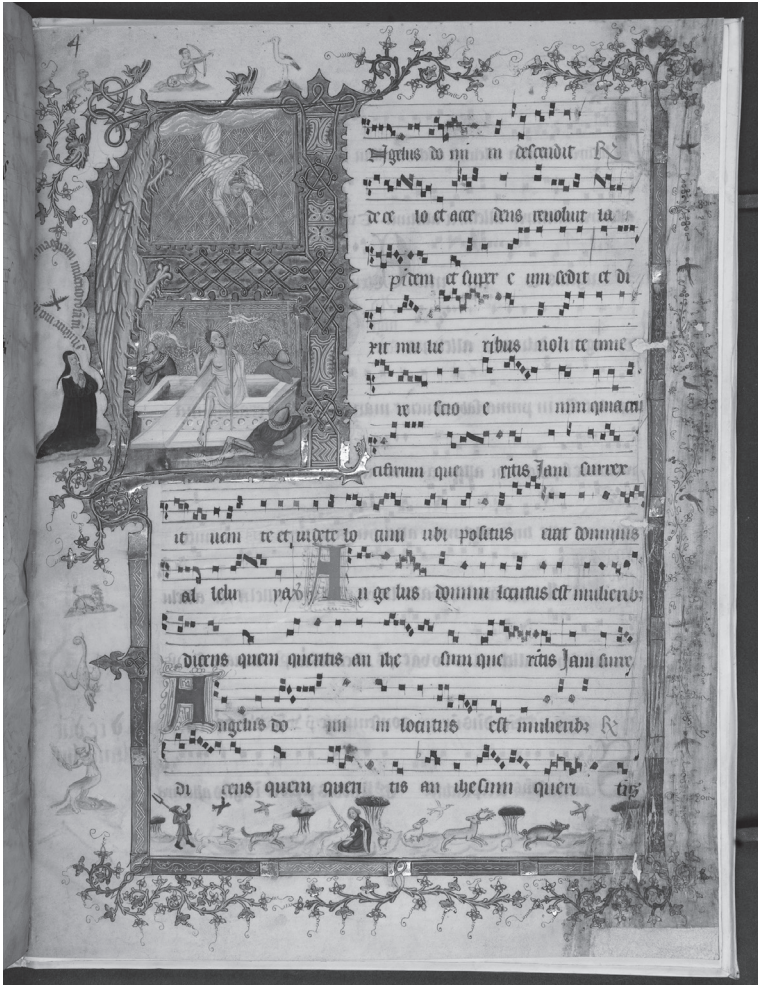 4
Angelus do mi ni descendit R
de ce lo et acce dens reuoluit la
pidem et super e um sedit et di
xit mu lie ribus noli te time
re scio e nim quia cru
cifixum que ritis Jam surrex
it ueni te et uidete lo cum ubi positus erat dominus
al lelu ya An ge lus domini locutus est mulierib
dicens quem queritis an ihe sum que ritis Jam surre
Angelus do mi ni locutus est mulierib R
di cens quem queri tis an ihesum queri tis
magnam misericordiam